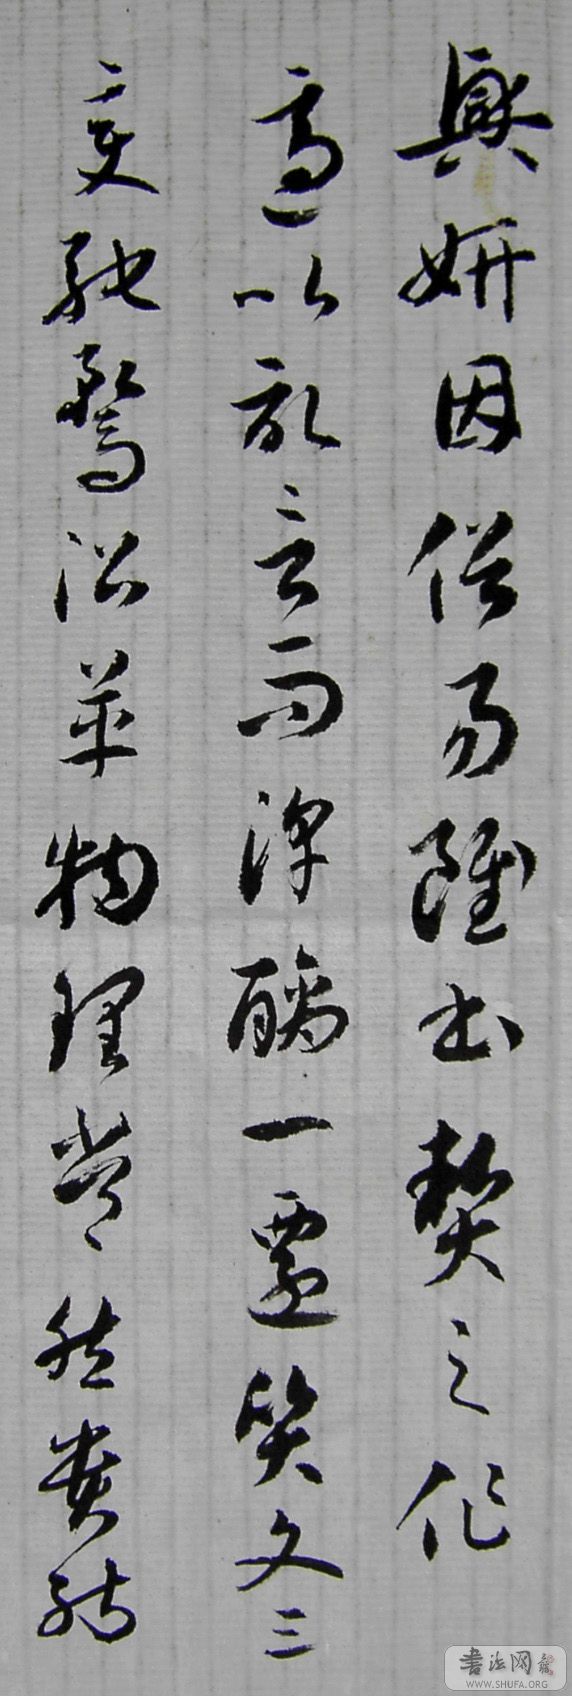 興妍因俗易雖书契之作
適以記言而淳醨一遷質文三
变馳騖沿革物理常然貴能
書法网
WWW.SHUFA.ORG